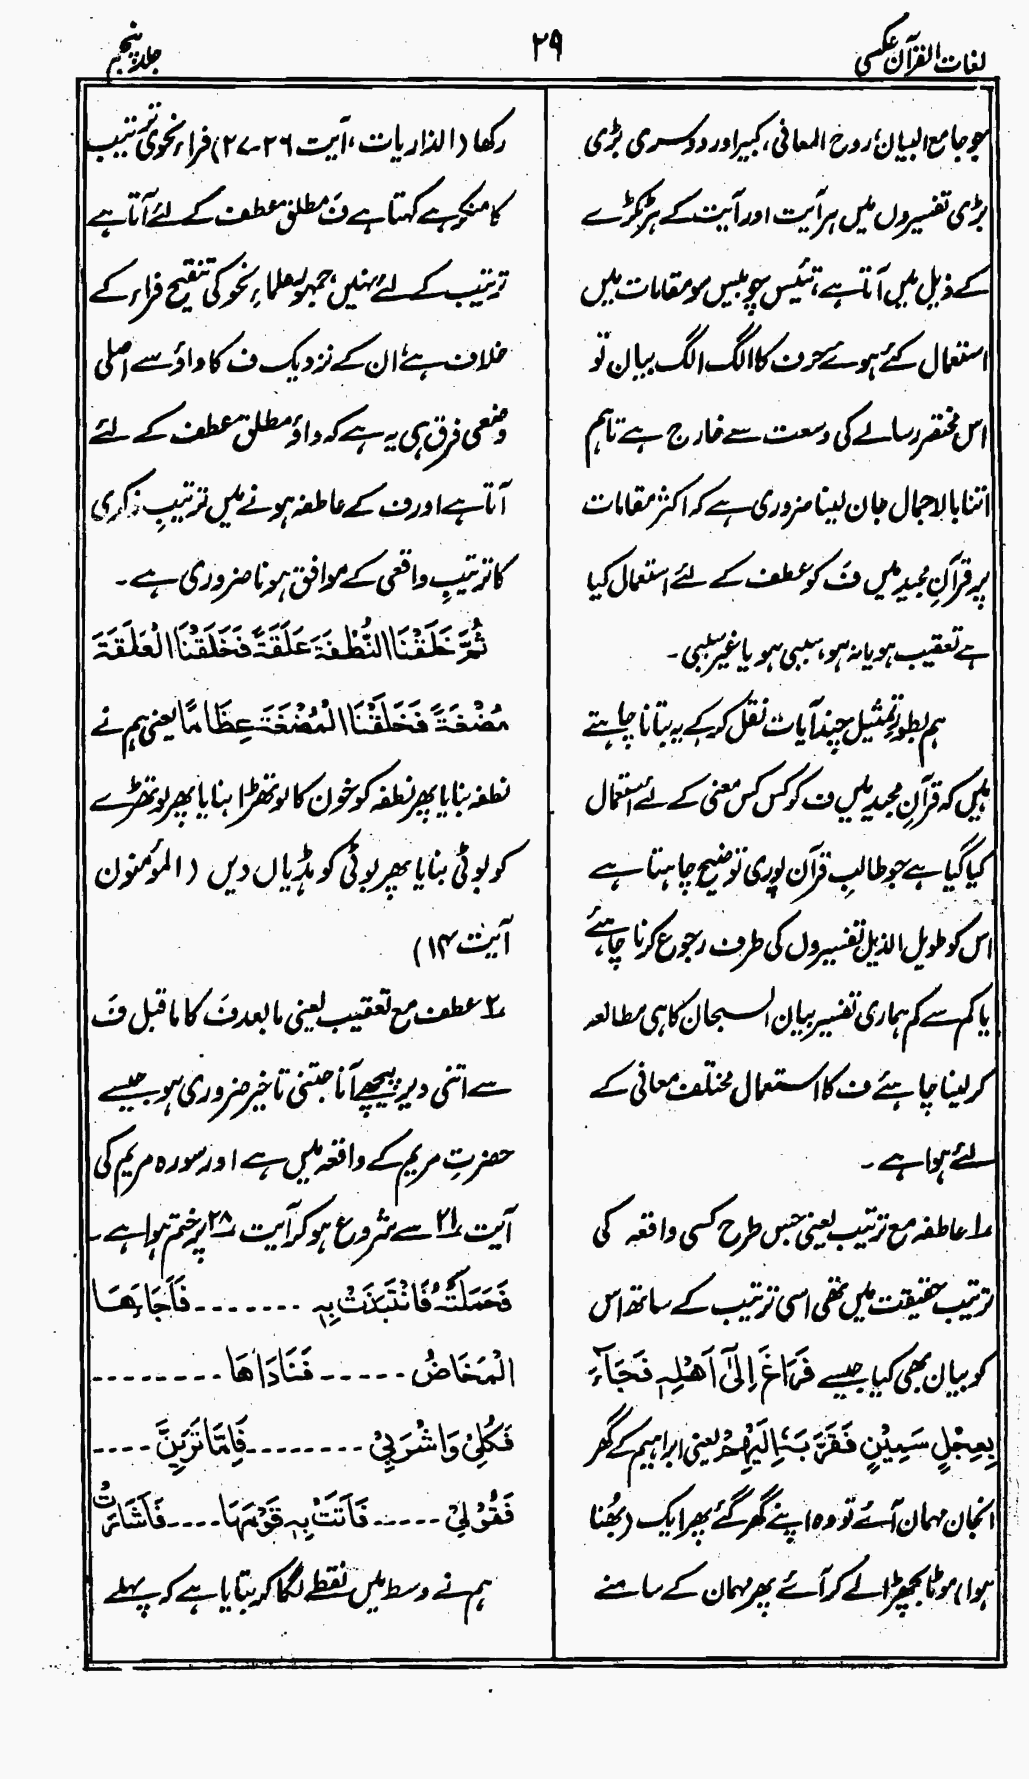 لغات القرآن عکسی
۲۹
جلد پنجم
جو جامع البیان، روح المعانی، کبیر اور دوسری بڑی
بڑی تفسیروں میں ہر آیت اور آیت کے ہر ٹکڑے
کے ذیل میں آتا ہے، تئیس چوبیس سو مقامات میں
استعمال کئے ہوئے حرف کا الگ الگ بیان تو
اس مختصر رسالے کی وسعت سے خارج ہے تاہم
اتنا بالاجمال جان لینا ضروری ہے کہ اکثر مقامات
پر قرآنِ مجید میں فَ کو عطف کے لئے استعمال کیا
ہے تعقیب ہو یا نہ ہو، سببی ہو یا غیر سببی۔
ہم بطورِ تمثیل چند آیات نقل کرکے یہ بتانا چاہتے
ہیں کہ قرآنِ مجید میں ف کو کس کس معنی کے لئے استعمال
کیا گیا ہے جو طالبِ قرآن پوری توضیح چاہتا ہے
اس کو طویل الذیل تفسیروں کی طرف رجوع کرنا چاہئے
یا کم سے کم ہماری تفسیر بیان السبحان کا ہی مطالعہ
کر لینا چاہئے ف کا استعمال مختلف معانی کے
لئے ہوا ہے۔
۱؎ عاطفہ مع ترتیب یعنی جس طرح کسی واقعہ کی
ترتیب حقیقت میں تھی اسی ترتیب کے ساتھ اس
کو بیان بھی کیا جیسے فَرَاغَ اِلٰٓی اَهْلِهٖ فَجَآءَ
بِعِجْلٍ سَمِیْنٍ فَقَرَّبَهٗ اِلَیْهِمْ یعنی ابراہیم کے گھر
انجان مہمان آئے تو وہ اپنے گھر گئے پھر ایک (بھُنا
ہوا) موٹا بچھڑا لے کر آئے پھر مہمان کے سامنے
رکھا (الذاریات، آیت ۲۶-۲۷) فراء نحوی ترتیب
کا منکر ہے کہتا ہے فَ مطلق عطف کے لئے آتا ہے
ترتیب کے لئے نہیں، جمہور علماءِ نحو کی تنقیح فراء کے
خلاف ہے ان کے نزدیک ف کا واؤ سے اصلی
وضعی فرق ہی یہ ہے کہ واؤ مطلق عطف کے لئے
آتا ہے اور ف کے عاطفہ ہونے میں ترتیبِ ذکری
کا ترتیبِ واقعی کے موافق ہونا ضروری ہے۔
ثُمَّ خَلَقْنَا النُّطْفَةَ عَلَقَةً فَخَلَقْنَا الْعَلَقَةَ
مُضْغَةً فَخَلَقْنَا الْمُضْغَةَ عِظَامًا یعنی ہم نے
نطفہ بنایا پھر نطفہ کو خون کا لوتھڑا بنایا پھر لوتھڑے
کو بوٹی بنایا پھر بوٹی کو ہڈیاں دیں (المؤمنون
آیت ۱۴)
۲؎ عطف مع تعقیب یعنی مابعد فَ کا ماقبل فَ
سے اتنی دیر پیچھے آنا جتنی تاخیر ضروری ہو جیسے
حضرتِ مریم کے واقعہ میں ہے اور سورہ مریم کی
آیت ۲۱ سے شروع ہوکر آیت ۲۸ پر ختم ہوا ہے۔
فَحَمَلَتْهُ فَانْتَبَذَتْ بِهٖ ------- فَاَجَاءَهَا
الْمَخَاضُ ------ فَنَادَاهَا --------
فَكُلِیْ وَاشْرَبِیْ -------- فَاِمَّا تَرَیِنَّ ----
فَقُوْلِیْ ----- فَاَتَتْ بِهٖ قَوْمَهَا ---- فَاَشَارَتْ
ہم نے وسط میں نقطے لگا کر بتایا ہے کہ پہلے